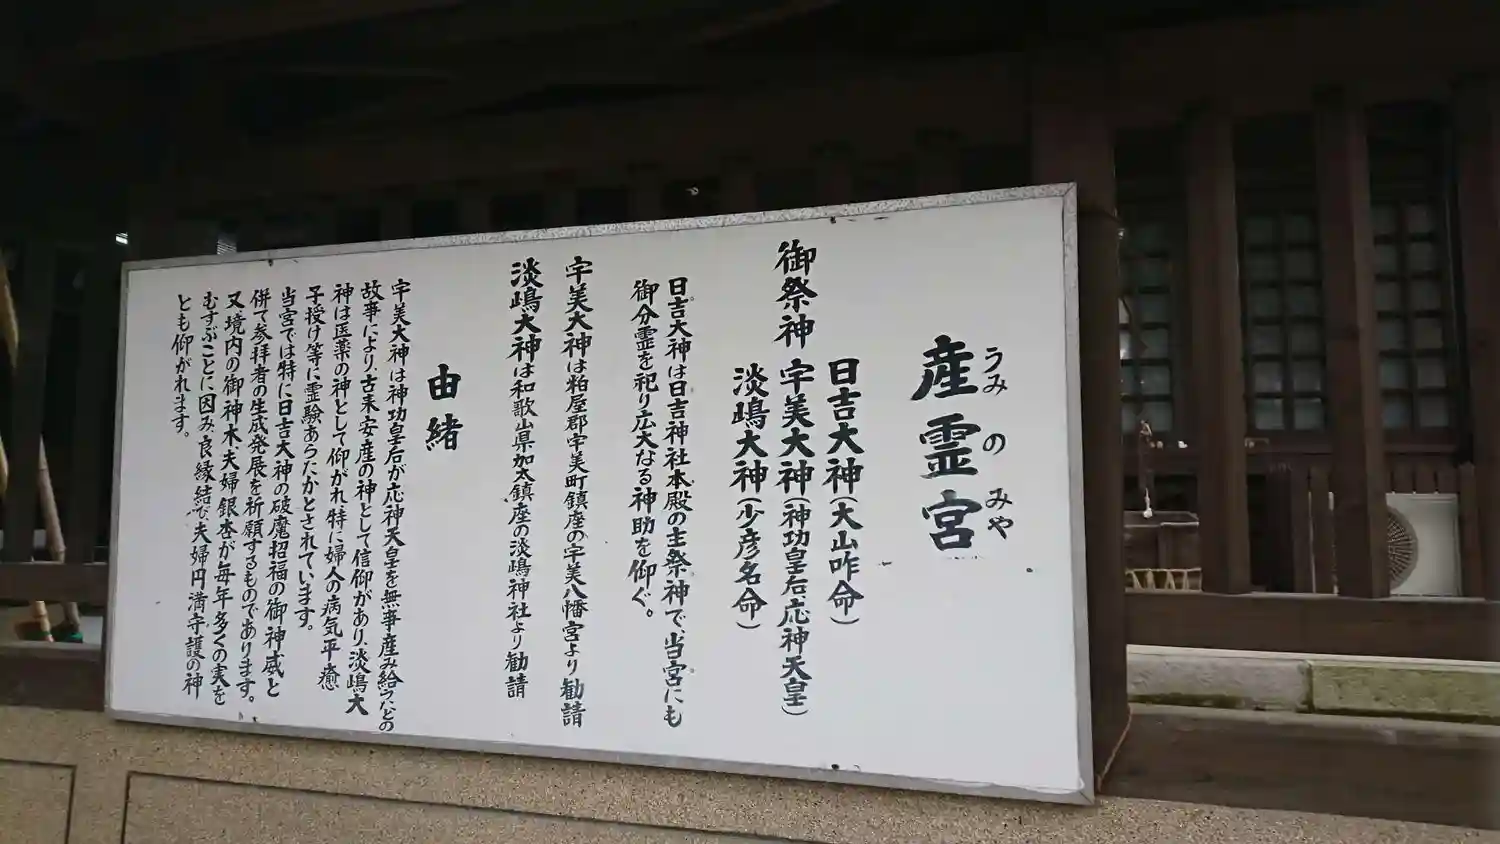 産霊宮
うみのみや
御祭神 日吉大神(大山咋命)
宇美大神(神功皇后応神天皇)
淡嶋大神(少彦名命)
日吉大神は日吉神社本殿の主祭神で、当宮にも
御分霊を祀り広大なる神助を仰ぐ。
宇美大神は粕屋郡宇美町鎮座の宇美八幡宮より勧請
淡嶋大神は和歌山県加太鎮座の淡嶋神社より勧請
由緒
宇美大神は神功皇后が応神天皇を無事産み給うなどの
故事により、古来安産の神として信仰があり、淡嶋大
神は医薬の神として仰がれ特に婦人の病気平癒
子授け等に霊験あらたかとされています。
当宮では特に日吉大神の破魔招福の御神威と
併て参拝者の生成発展を祈願するものであります。
又境内の御神木夫婦銀杏が毎年多くの実を
むすぶことに因み良縁結び夫婦円満守護の神
とも仰がれます。